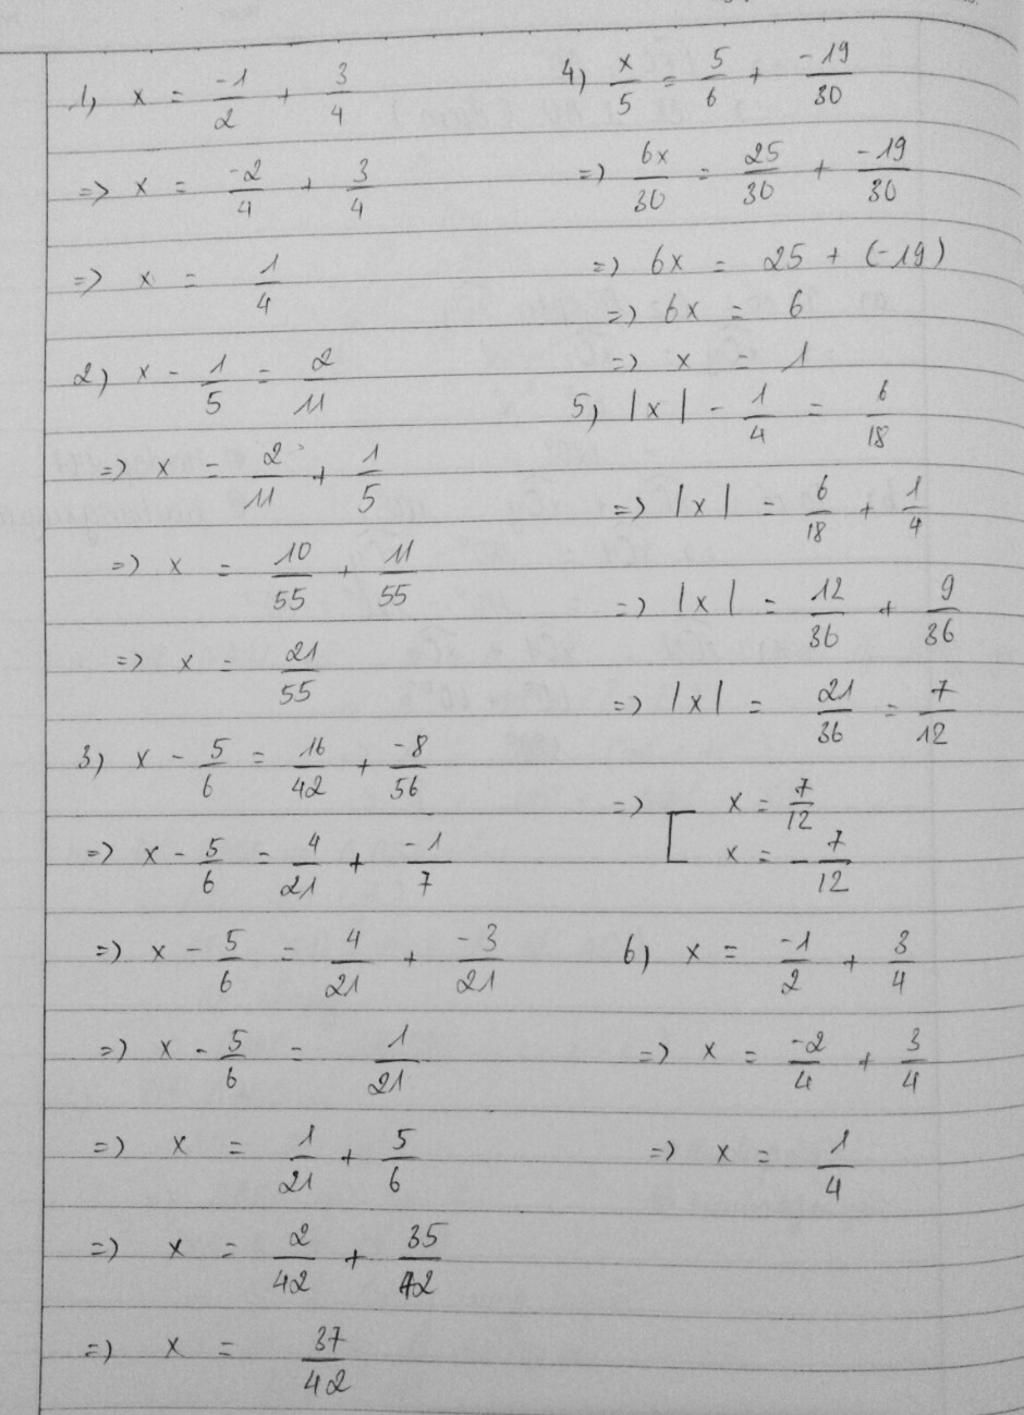 1) x = -1/2 + 3/4
=> x = -2/4 + 3/4
=> x = 1/4
2) x - 1/5 = 2/11
=> x = 2/11 + 1/5
=> x = 10/55 + 11/55
=> x = 21/55
3) x - 5/6 = 16/42 + -8/56
=> x - 5/6 = 4/21 + -1/7
=> x - 5/6 = 4/21 + -3/21
=> x - 5/6 = 1/21
=> x = 1/21 + 5/6
=> x = 2/42 + 35/42
=> x = 37/42
4) x/5 = 5/6 + -19/30
=> 6x/30 = 25/30 + -19/30
=> 6x = 25 + (-19)
=> 6x = 6
=> x = 1
5) |x| - 1/4 = 6/18
=> |x| = 6/18 + 1/4
=> |x| = 12/36 + 9/36
=> |x| = 21/36 = 7/12
=> [ x = 7/12
x = -7/12
6) x = -1/2 + 3/4
=> x = -2/4 + 3/4
=> x = 1/4